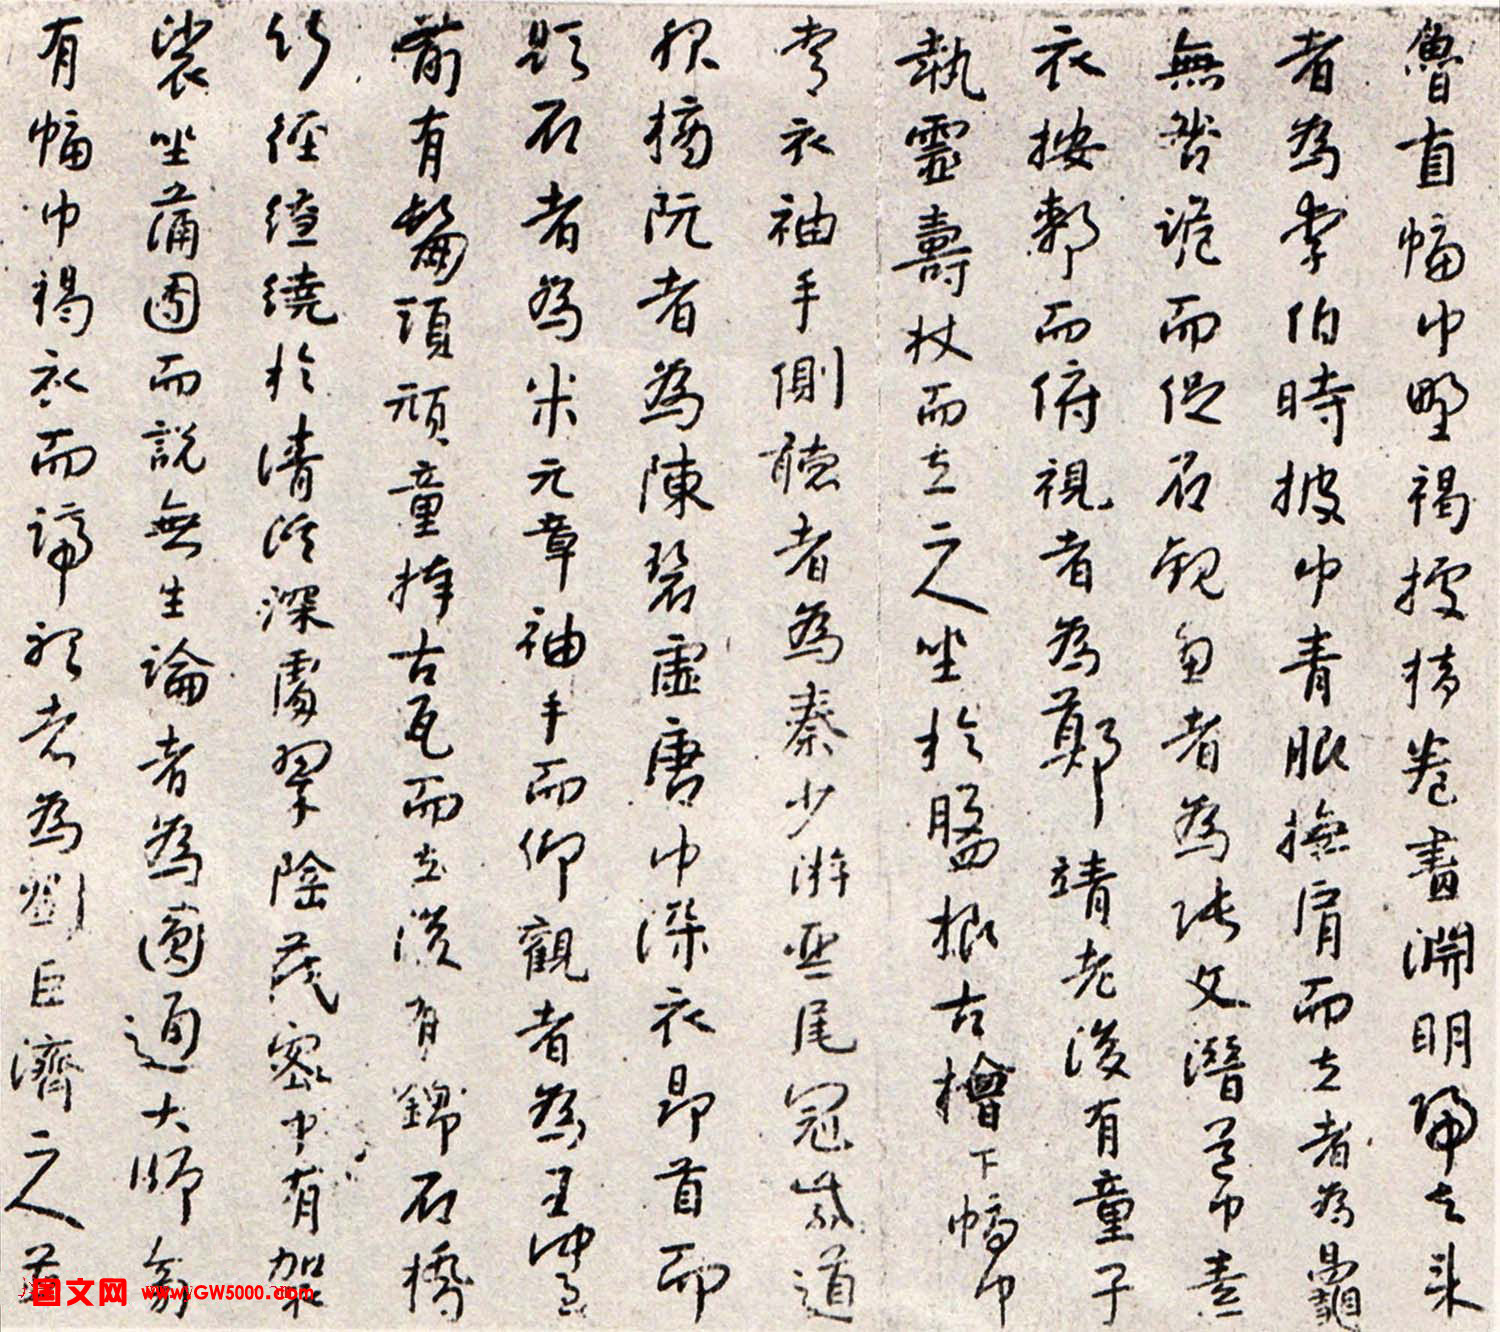 魯直幅巾野褐據橫卷畫淵明歸去來
者為李伯時披巾青服撫肩而立者為晁
無咎詭而促石觀魚者為張文潛道巾素
衣按膝而俯視者為鄭靖老後有童子
執靈壽杖而立二人坐於盤根古檜下幅巾
青衣袖手側聽者為秦少游琴尾冠紫道
服摘阮者為陳碧虛唐巾深衣昂首而
題石者為米元章袖手而仰觀者為王仲至
前有鬅頭頑童捧古硯而立後有錦石橋
竹徑繚繞於清溪深處翠陰茂密中有袈
裟坐蒲團而說無生論者為圓通大師旁
有幅巾褐衣而諦聽者為劉巨濟二人並
图文网 www.GW5000.com